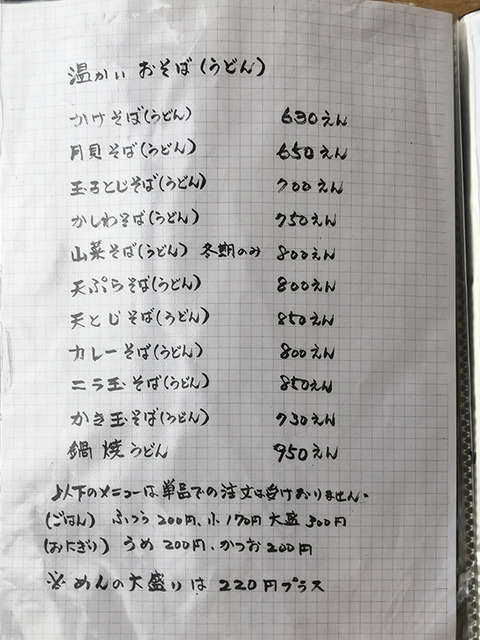 温かい おそば(うどん)
かけそば(うどん) 630えん
月見そば(うどん) 650えん
玉子とじそば(うどん) 700えん
かしわそば(うどん) 750えん
山菜そば(うどん) 冬期のみ 800えん
天ぷらそば(うどん) 800えん
天とじそば(うどん) 850えん
カレーそば(うどん) 800えん
ニラ玉そば(うどん) 850えん
かき玉そば(うどん) 730えん
鍋焼うどん 950えん
以下のメニューは単品での注文は受けおりません。
(ごはん) ふつう200円、小170円 大盛300円
(おにぎり) うめ200円、かつお200円
※めんの大盛りは220円プラス